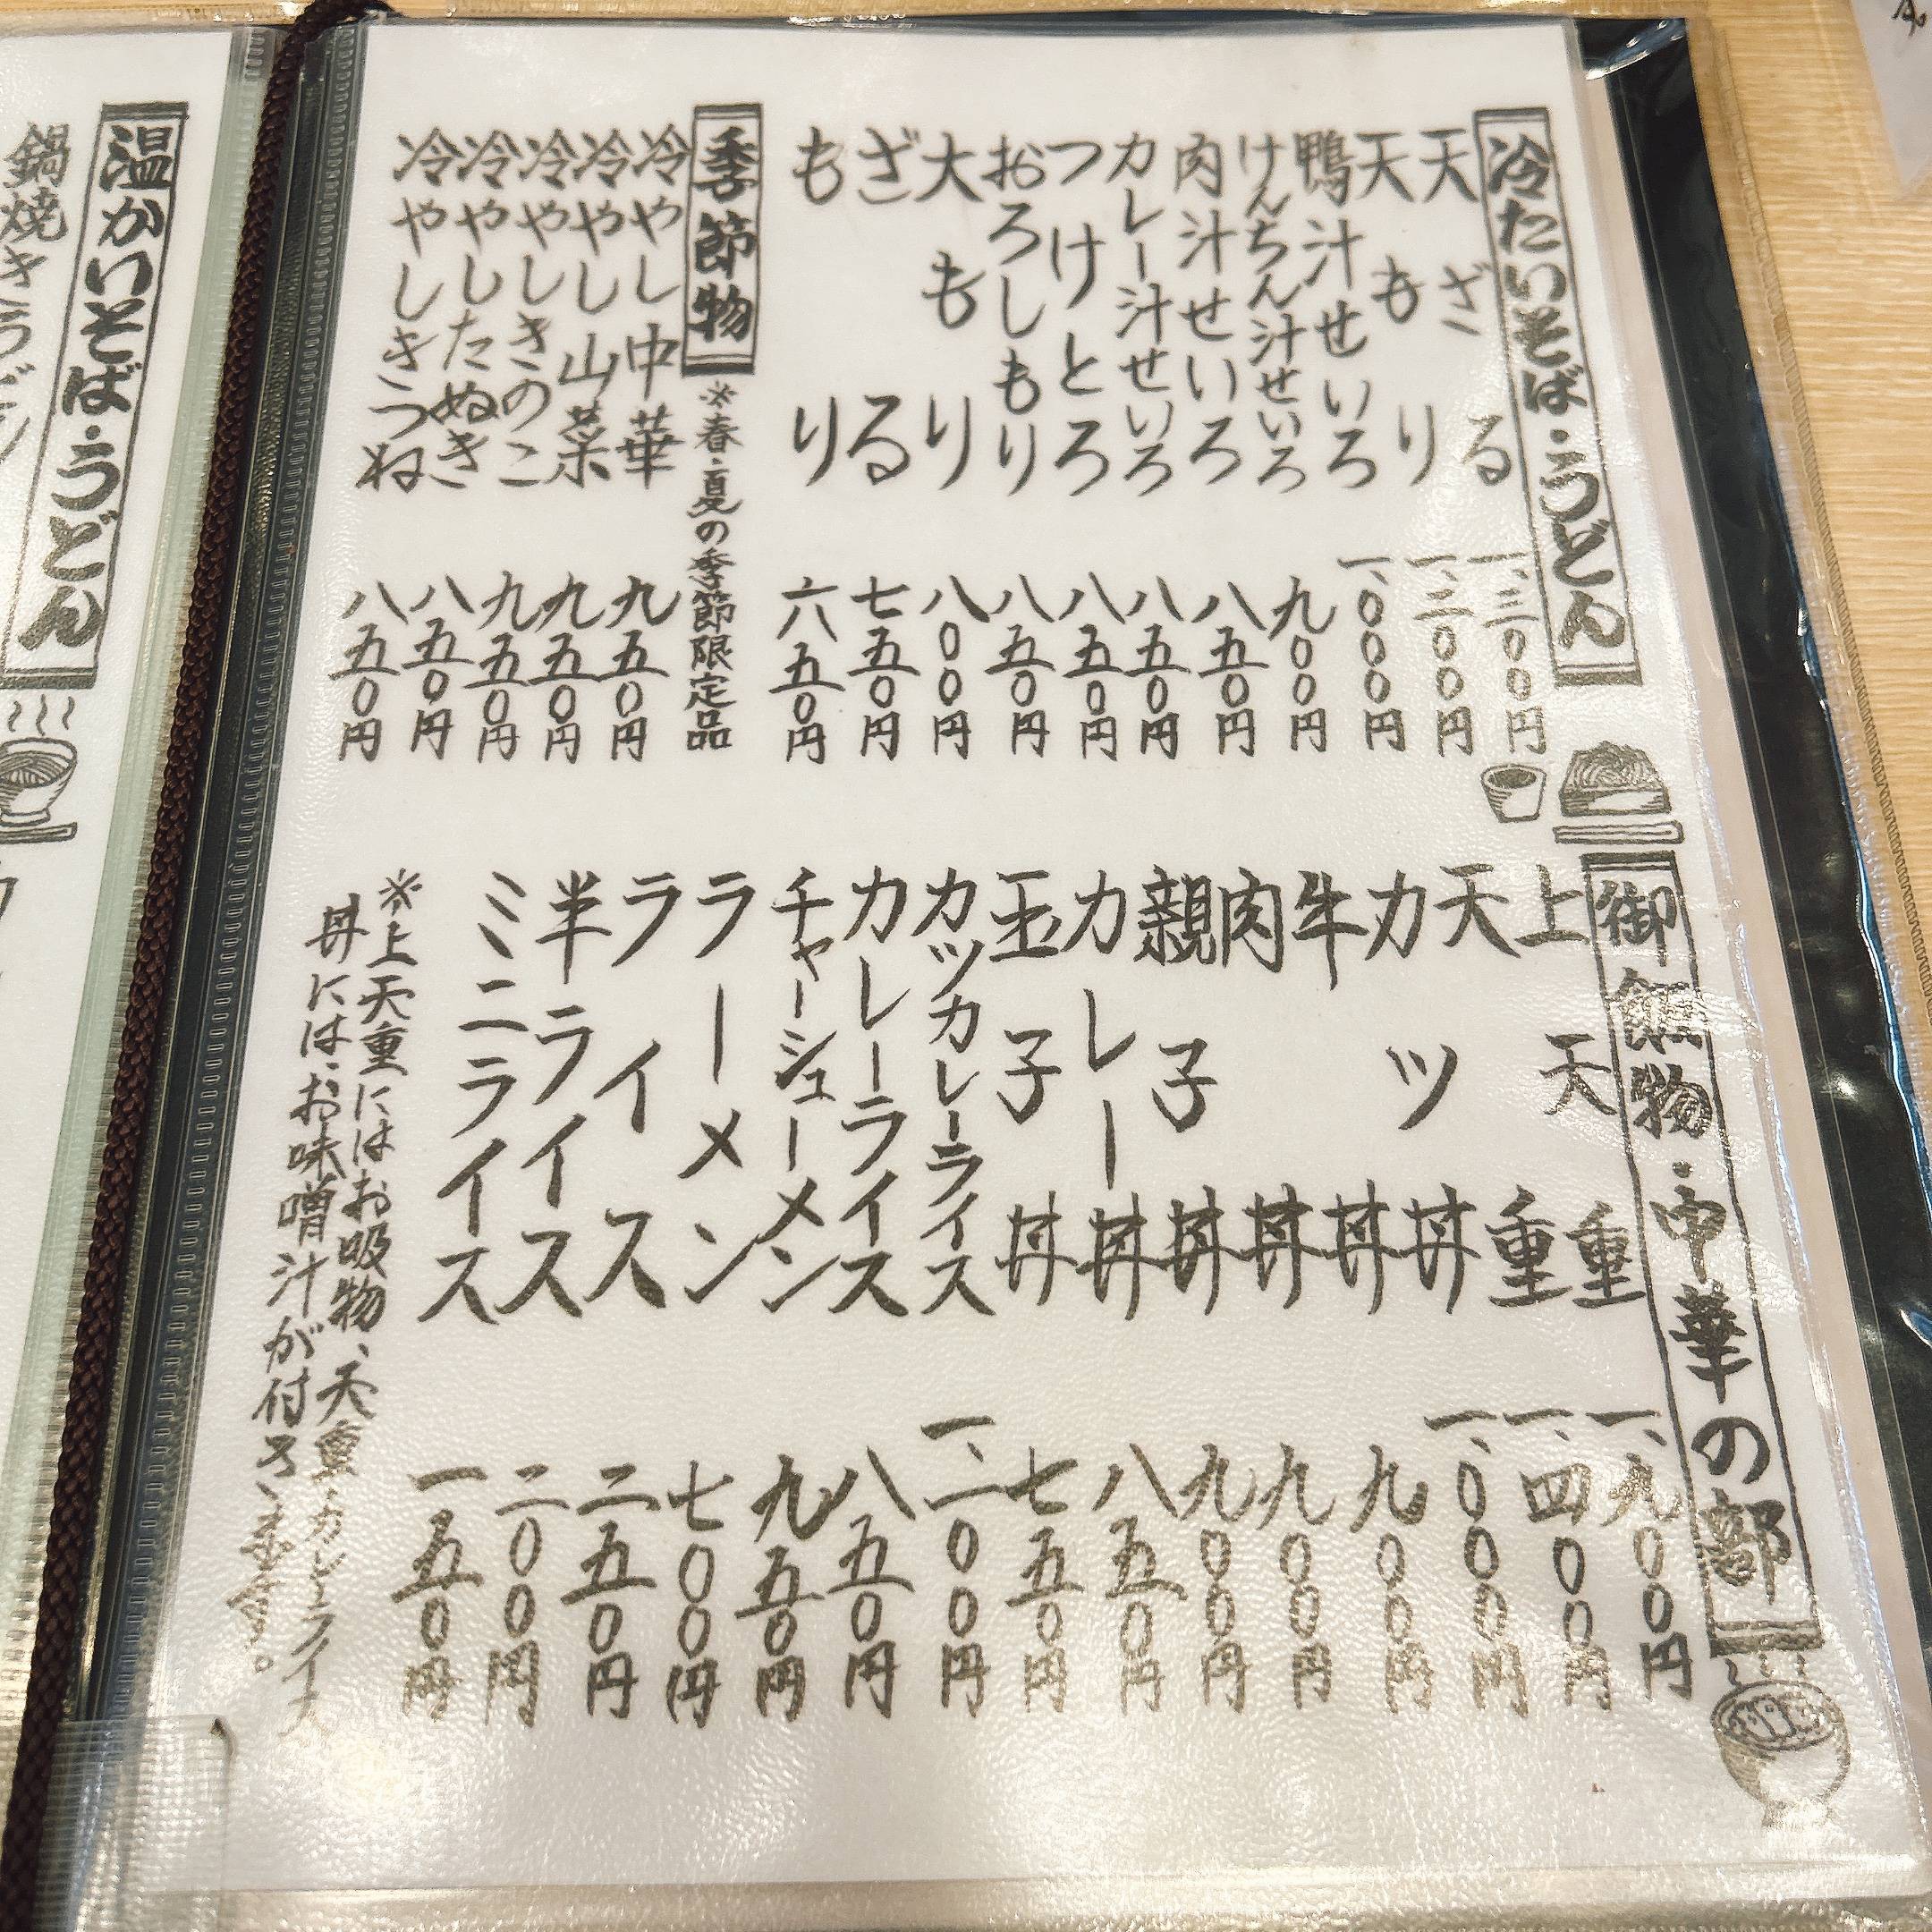 冷たいそば・うどん
天ざる 一、三〇〇円
天もり 一、二〇〇円
鴨汁せいろ 一、〇〇〇円
けんちん汁せいろ 九〇〇円
肉汁せいろ 八五〇円
カレー汁せいろ 八五〇円
つけとろ 八五〇円
おろしもり 八五〇円
大もり 八〇〇円
ざる 七五〇円
もり 六五〇円
季節物 ※春・夏の季節限定品
冷やし中華 九五〇円
冷やし山菜 九五〇円
冷やしきのこ 九五〇円
冷やしたぬき 八五〇円
冷やしきつね 八五〇円
御飯物・中華の部
上天重 一、九〇〇円
天重 一、四〇〇円
カツ丼 一、〇〇〇円
牛丼 九〇〇円
肉丼 九〇〇円
親子丼 九〇〇円
カレー丼 八五〇円
玉子丼 七五〇円
カツカレーライス 一、一〇〇円
カレーライス 八五〇円
チャーシューメン 九五〇円
ラーメン 七〇〇円
ライス 二五〇円
半ライス 二〇〇円
ミニライス 一五〇円
※上天重にはお吸物、天重・カレーライス
丼には、お味噌汁が付きます。
温かいそば・うどん
鍋焼きうどん